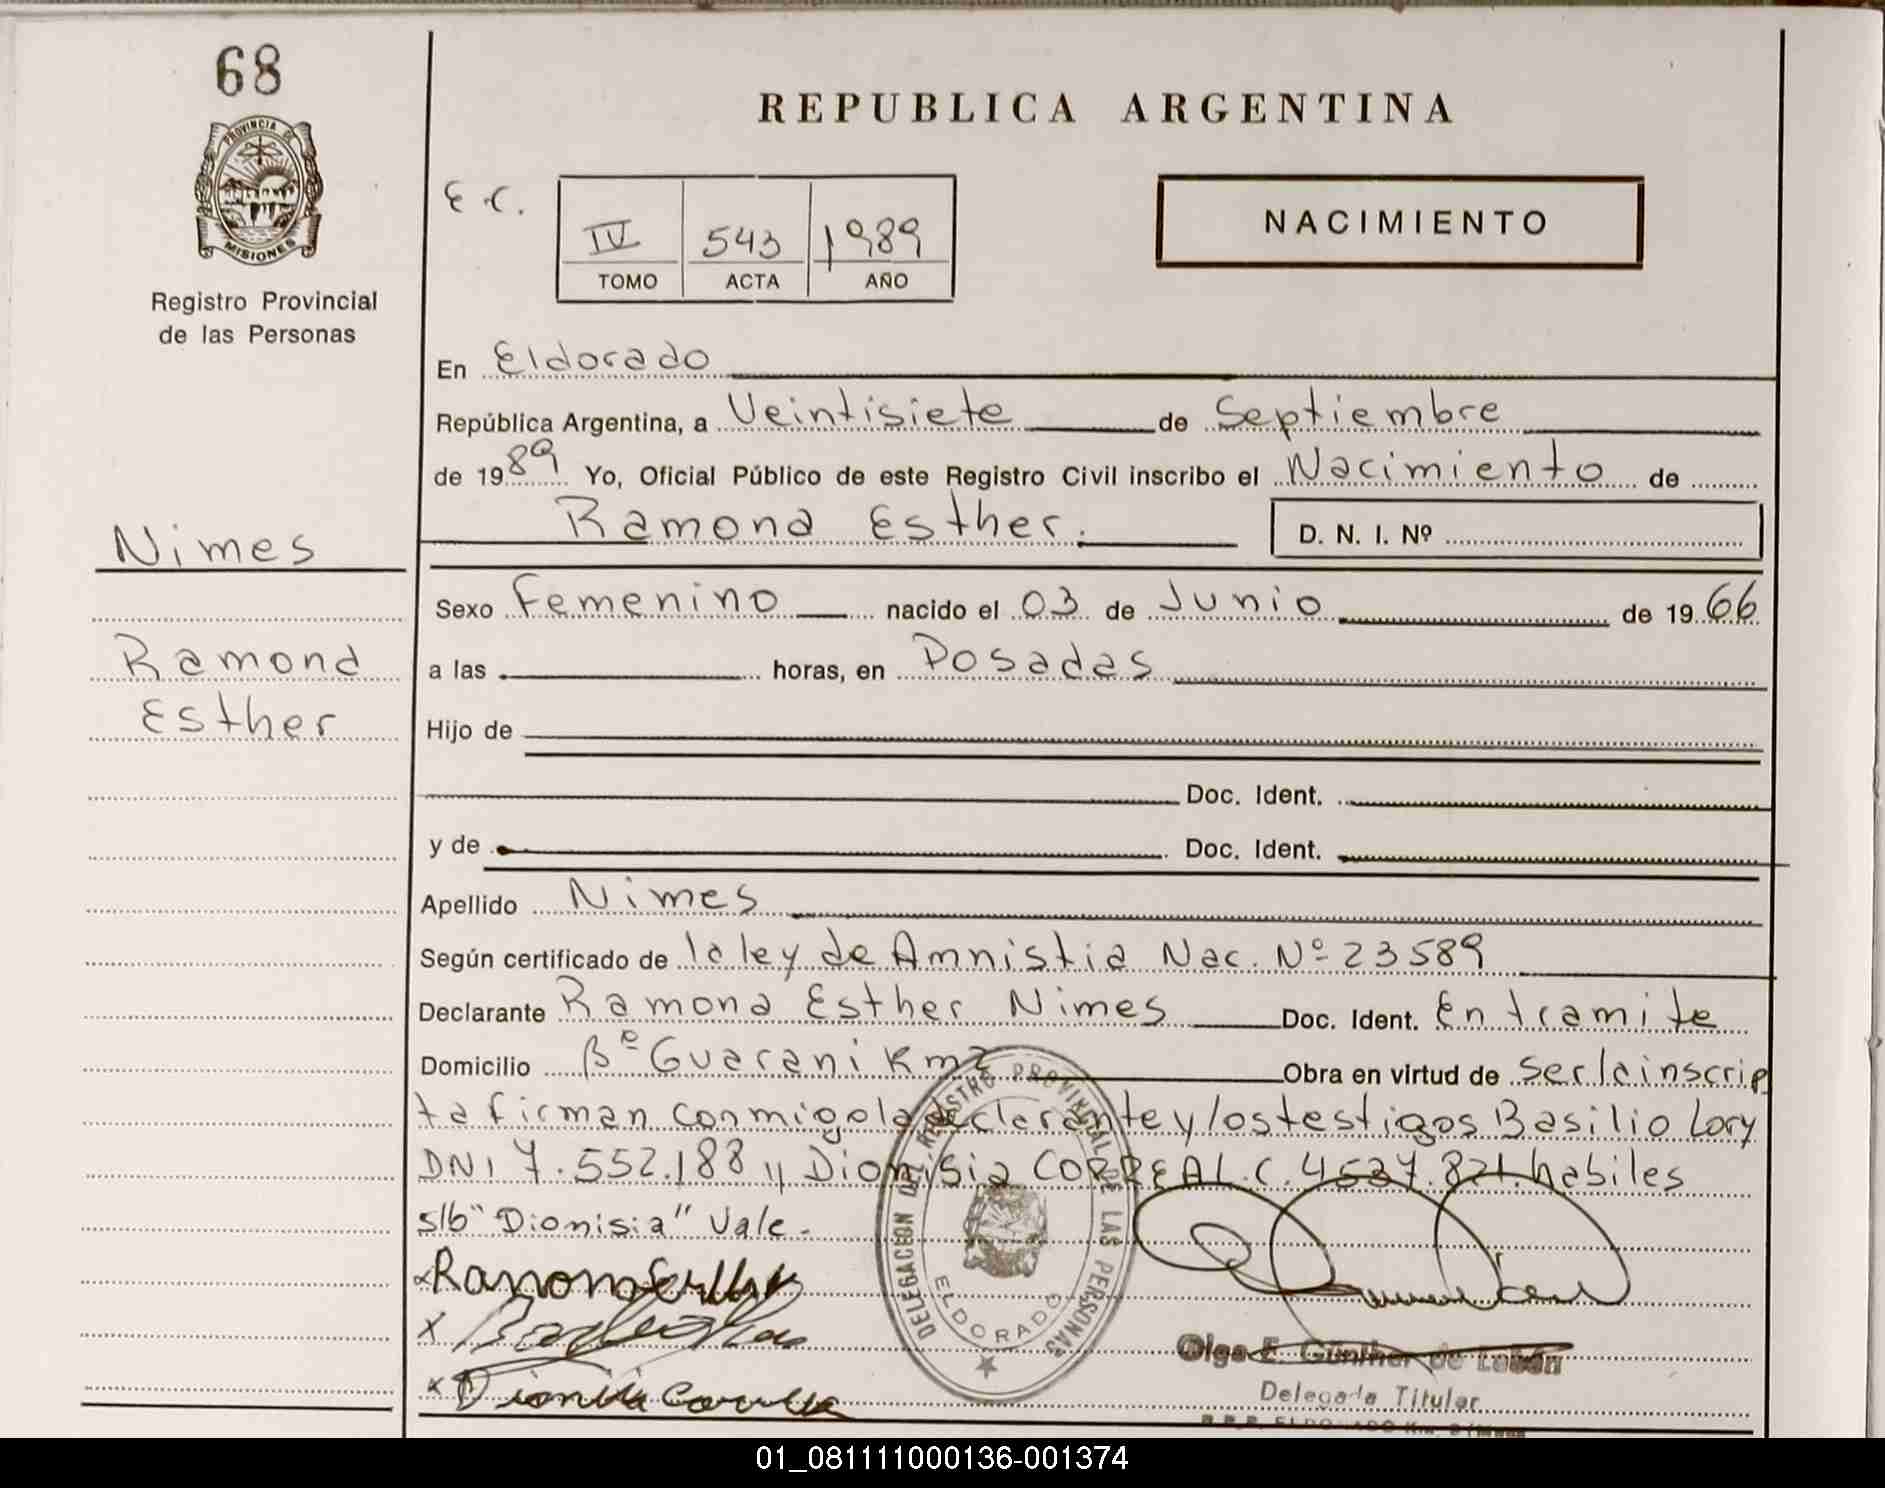 68
PROVINCIA DE
MISIONES
Registro Provincial
de las Personas
Nimes
Ramona
Esther
REPUBLICA ARGENTINA
E.C.
IV 543 1989
TOMO ACTA AÑO
NACIMIENTO
En Eldorado
República Argentina, a Veintisiete de Septiembre
de 1989 Yo, Oficial Público de este Registro Civil inscribo el Nacimiento de
Ramona Esther.
D. N. I. Nº
Sexo Femenino nacido el 03 de Junio de 1966
a las horas, en Posadas
Hijo de
Doc. Ident.
y de Doc. Ident.
Apellido Nimes
Según certificado de la ley de Amnistia Nac. Nº 23589
Declarante Ramona Esther Nimes Doc. Ident. En tramite
Domicilio Bº Guarani Km 2 Obra en virtud de ser la inscrip
ta firman conmigo la declarante y los testigos Basilio Lory
DNI 7.552.188 y Dionisia CORREA L.C. 4537.821. habiles
s/b "Dionisia" Vale.
DELEGACION DEL REGISTRO PROVINCIAL DE LAS PERSONAS
ELDORADO
Olga E. Günther de Labán
Delegada Titular
01_081111000136-001374